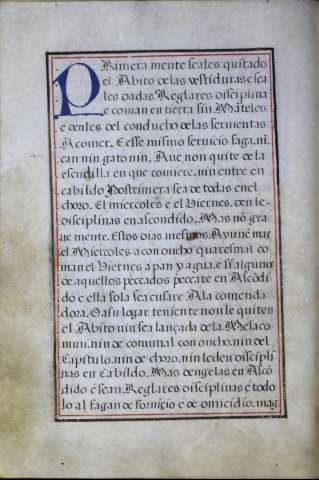 PRimera mente seales quitado
el Abito de las vestiduras e sea
les dadas Reglares disciplina
e coman en tierra sin Māteles
e denles del conducho de las servientas
A comer. E esse mismo servicio fagan. ni
can nin gato nin, Ave, non quite de la
escudilla en que comiere. nin entre en
cabildo Postrimera sea de todas en el
choro. El miercoles e el Viernes. den le
disciplinas en ascondido. Mas nō gra
ve mente. Estos dias mesmos Ayune mas
el Miercoles a con oucho quaresmal co
man el Viernes a pan y agua. e si alguno
de aquellos peccados peccare en Ascōdi
do e ella sola se acusare A la comenda
dora. O a su logar teniente non le quiten
el Abito nin sea lançada de la Mesa co
mun. nin de comunal con oucho. nin del
Capitulo. nin de choro. nin le den discipli
nas en Cabildo. Mas dengelas en Ascō
dido e sean Reglares disciplinas e todo
lo al fagan de fornicio e de omicidio. mag